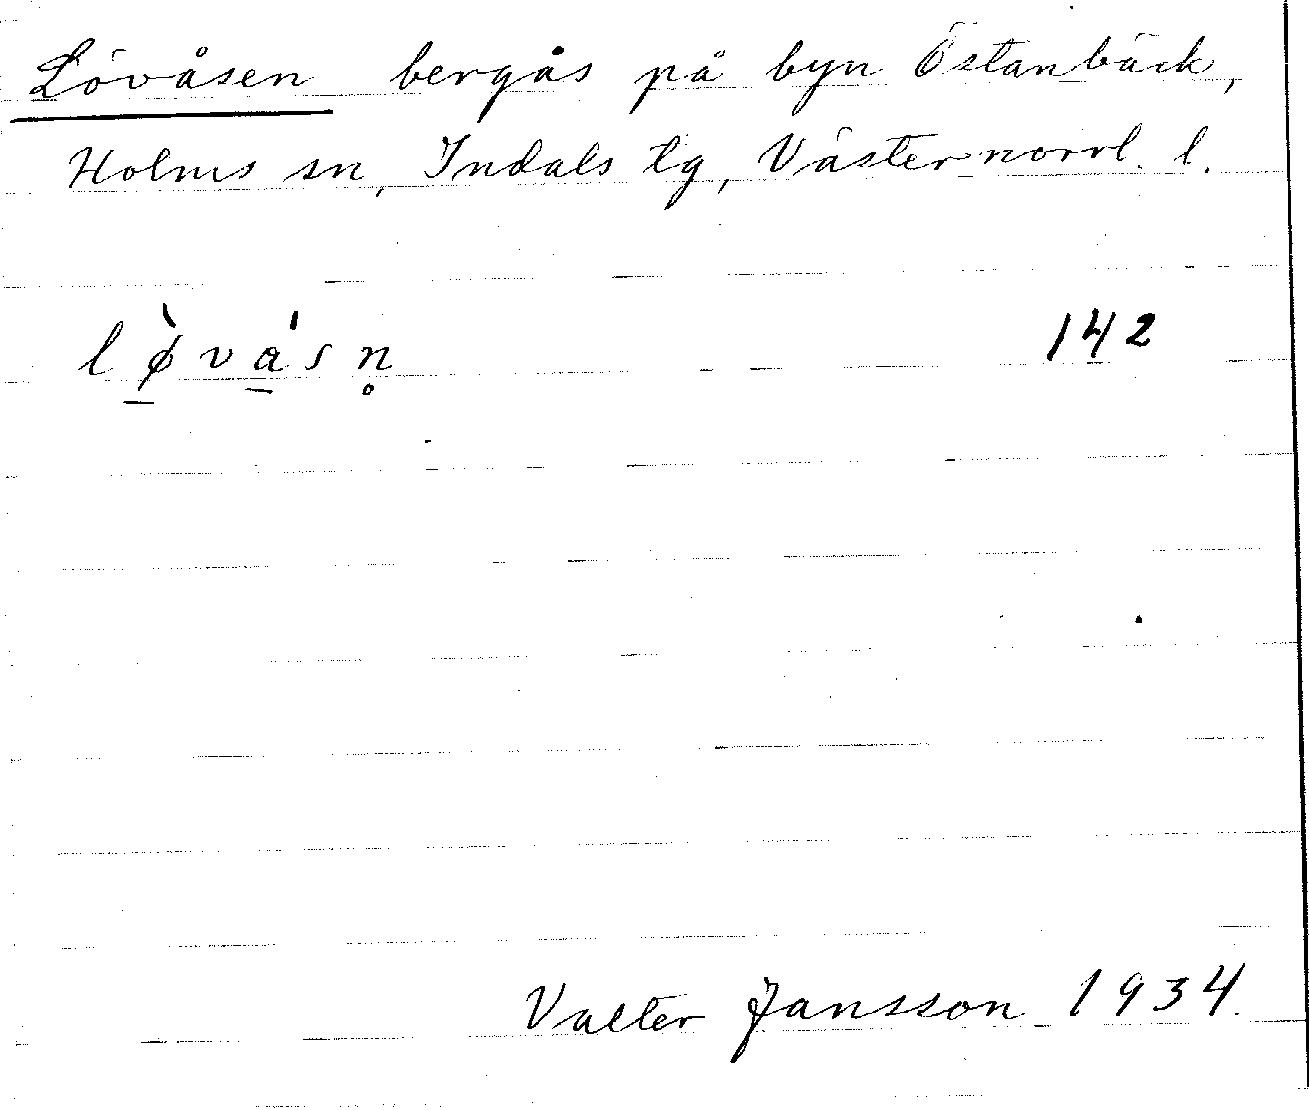 Lövåsen bergås på byn Östanbäck,
Holms sn, Indals tg, Västernorrl. l.
lø̠̀vá̠sn̥ 142
Valter Jansson 1934.